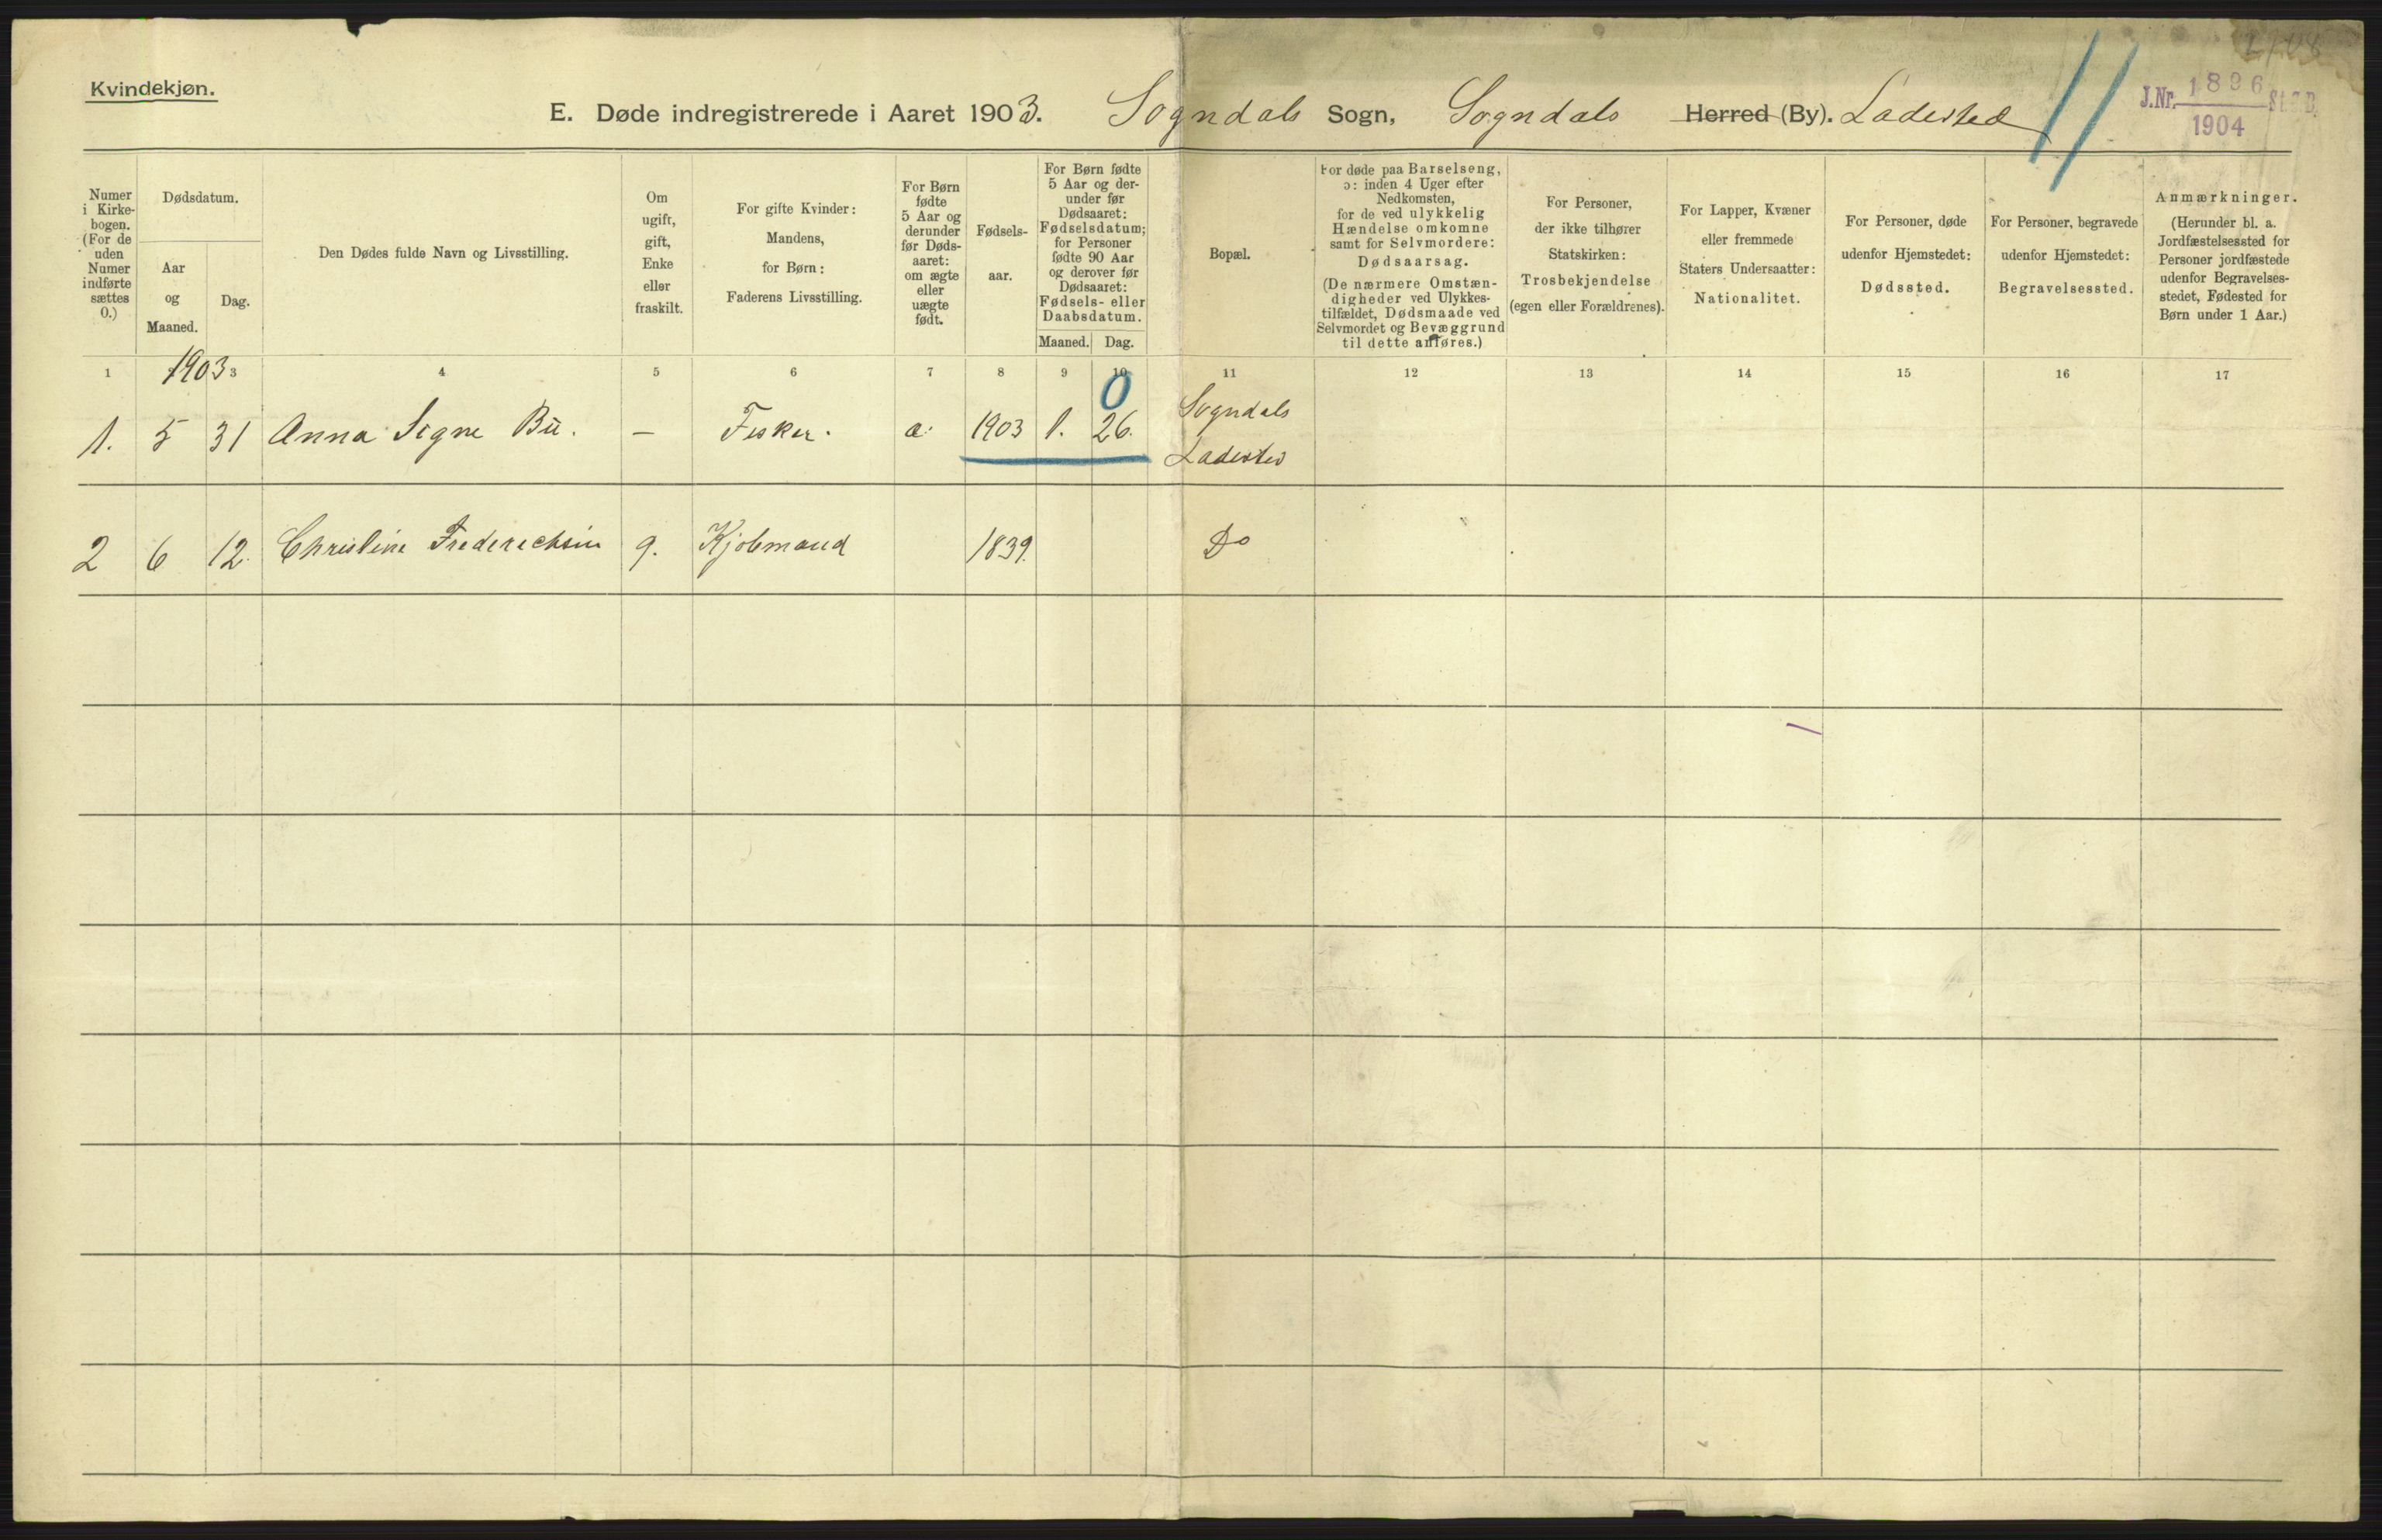 Kvindekjøn.
E. Døde indregistrerede i Aaret 1903. Sogndals Sogn, Sogndals Herred (By). Ladested
J.Nr. 1896 St.C.B.
1904
Numer
i Kirke-
bogen.
(For de
uden
Numer
indførte
sættes
0.)
Dødsdatum.
Aar
og
Maaned.
Dag.
Den Dødes fulde Navn og Livsstilling.
Om
ugift,
gift,
Enke
eller
fraskilt.
For gifte Kvinder:
Mandens,
for Børn:
Faderens Livsstilling.
For Børn
fødte
5 Aar og
derunder
før Døds-
aaret:
om ægte
eller
uægte
født.
Fødsels-
aar.
For Børn fødte
5 Aar og der-
under før
Dødsaaret:
Fødselsdatum;
for Personer
fødte 90 Aar
og derover før
Dødsaaret:
Fødsels- eller
Daabsdatum.
Maaned. Dag.
Bopæl.
For døde paa Barselseng,
ɔ: inden 4 Uger efter
Nedkomsten,
for de ved ulykkelig
Hændelse omkomne
samt for Selvmordere:
Dødsaarsag.
(De nærmere Omstæn-
digheder ved Ulykkes-
tilfældet, Dødsmaade ved
Selvmordet og Bevæggrund
til dette anføres.)
For Personer,
der ikke tilhører
Statskirken:
Trosbekjendelse
(egen eller Forældrenes).
For Lapper, Kvæner
eller fremmede
Staters Undersaatter:
Nationalitet.
For Personer, døde
udenfor Hjemstedet:
Dødssted.
For Personer, begravede
udenfor Hjemstedet:
Begravelsessted.
Anmærkninger.
(Herunder bl. a.
Jordfæstelsessted for
Personer jordfæstede
udenfor Begravelses-
stedet, Fødested for
Børn under 1 Aar.)
1 1903 3 4 5 6 7 8 9 10 11 12 13 14 15 16 17
0
1. 5 31 Anna Signe Bü. — Fisker. a. 1903 1. 26. Sogndals
Ladested
2 6 12. Christine Frederechsen g. Kjøbmand 1839. Do